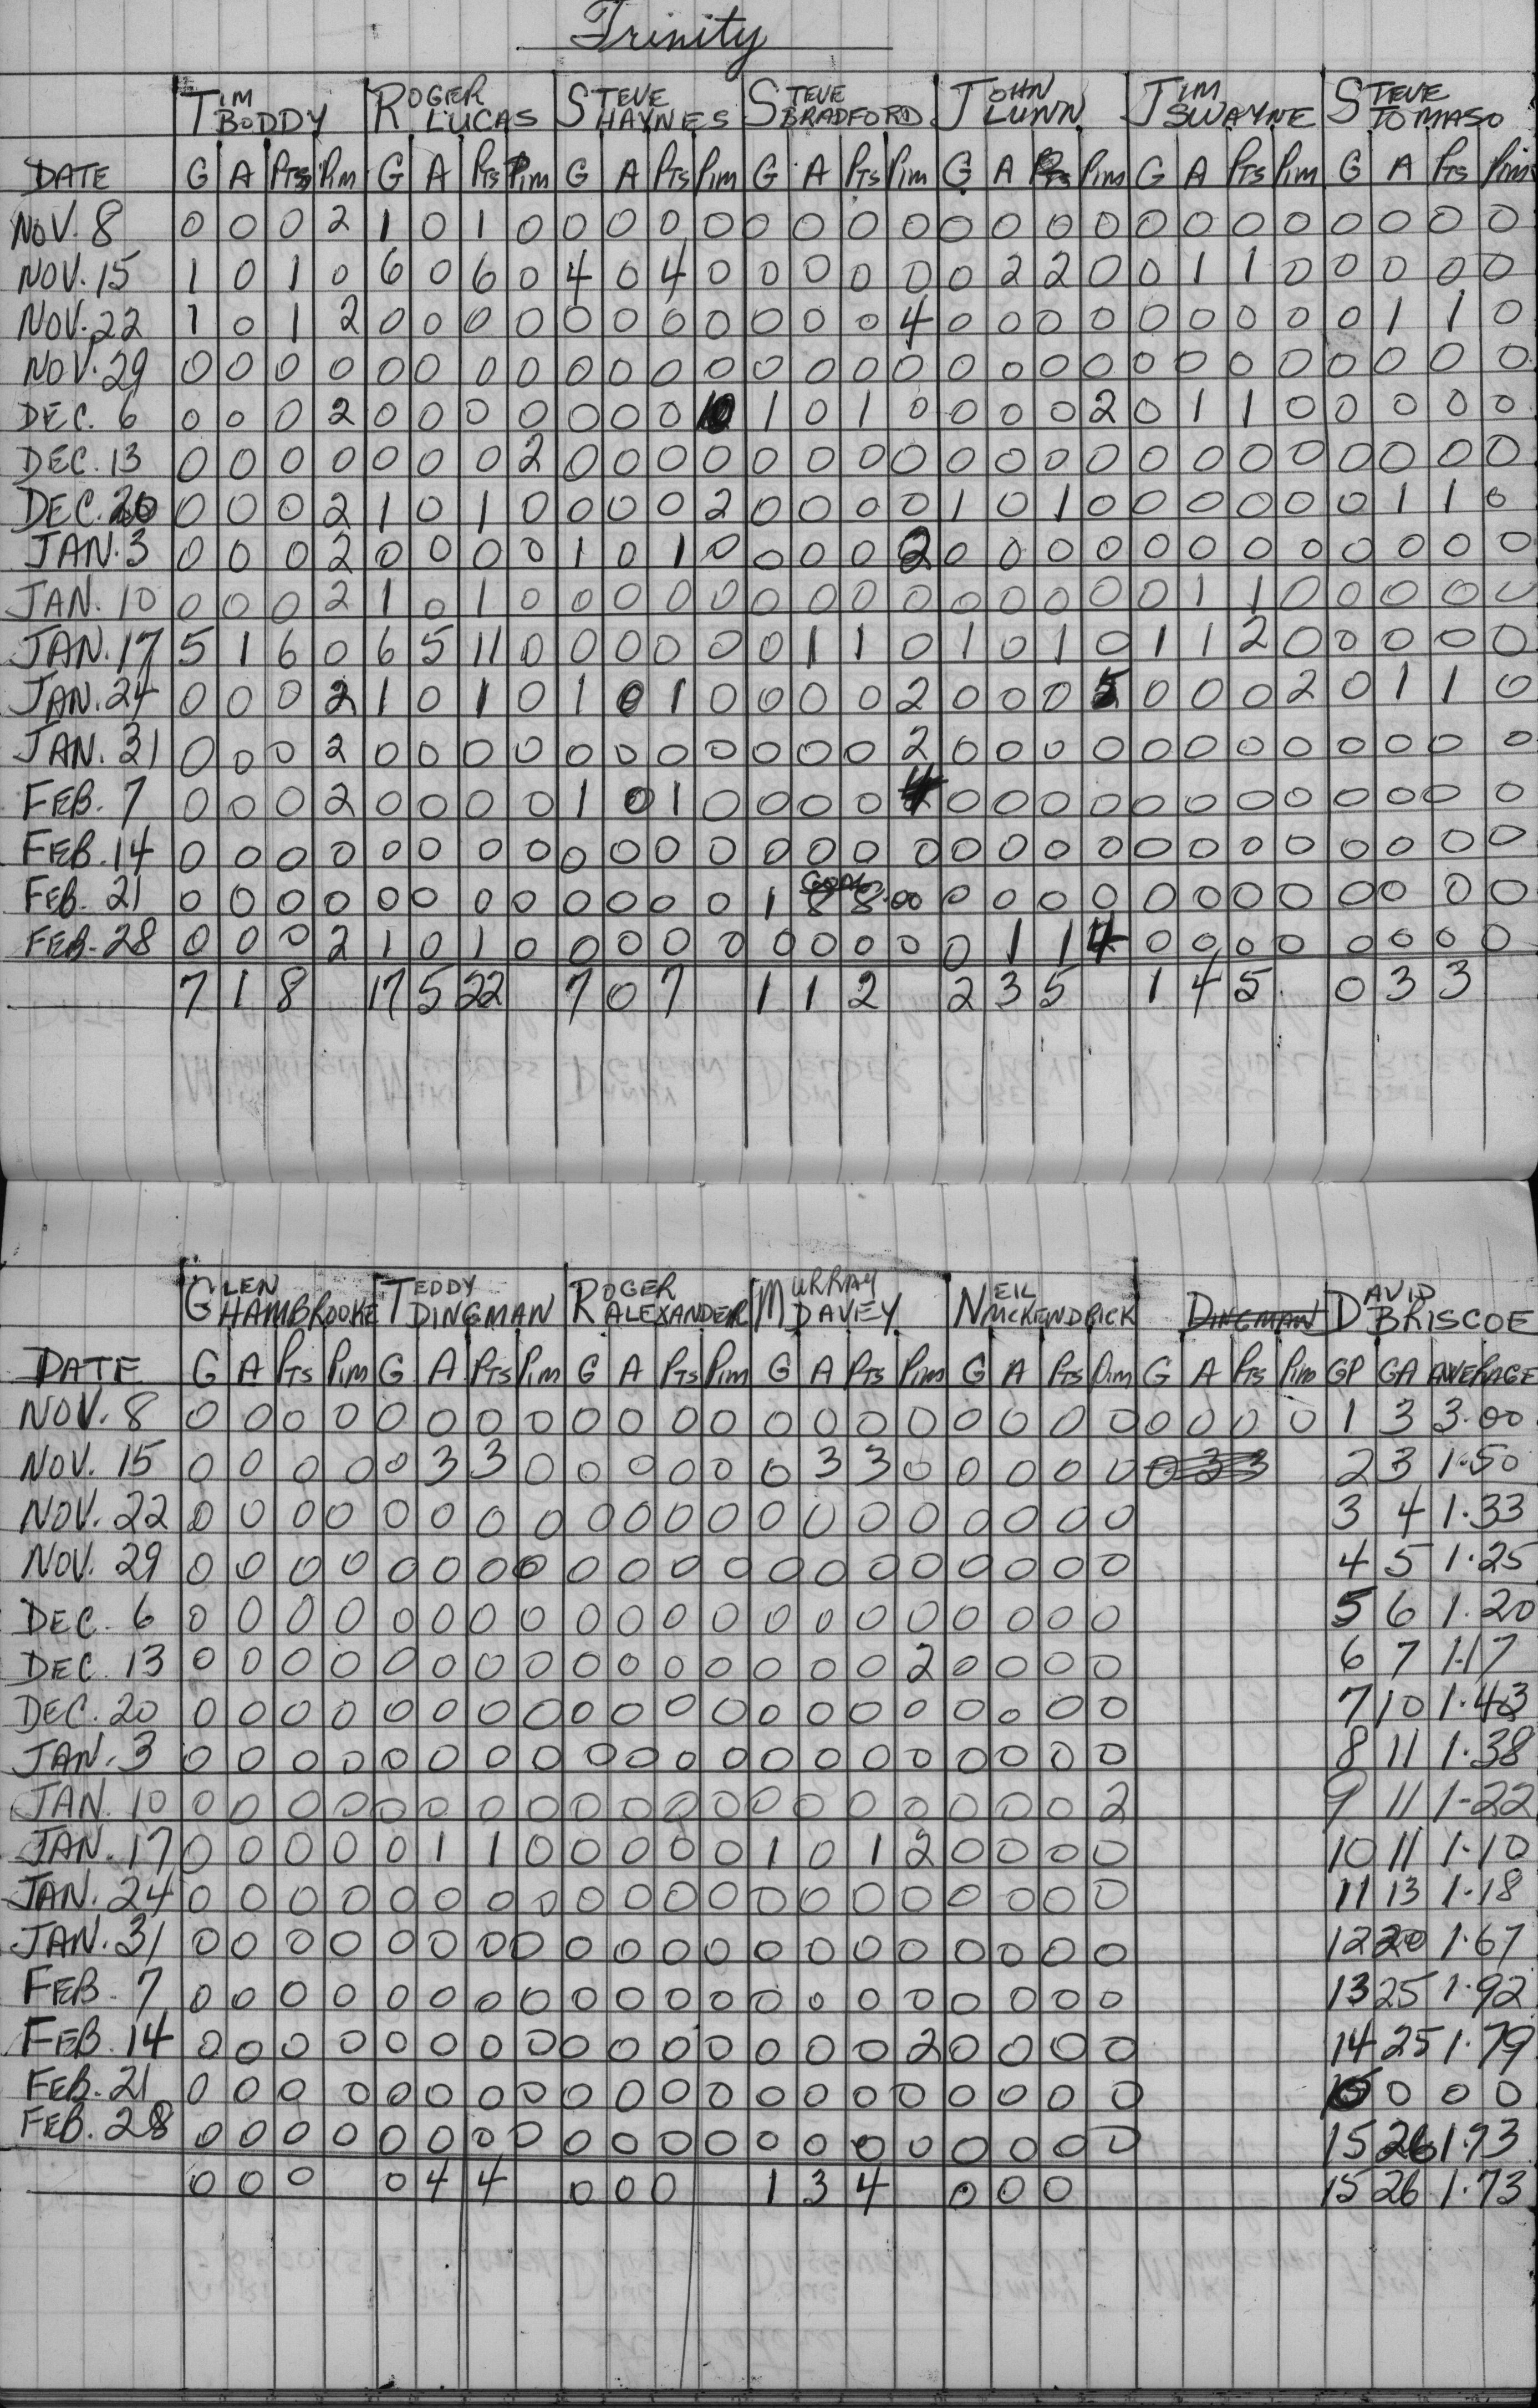 Trinity
TIM BODDY ROGER LUCAS STEVE HAYNES STEVE BRADFORD JOHN LUNN JIM SWAYNE STEVE TOMASO
DATE G A PTS PIM G A PTS PIM G A PTS PIM G A PTS PIM G A PTS PIM G A PTS PIM G A PTS PIM
NOV. 8 0 0 0 2 1 0 1 0 0 0 0 0 0 0 0 0 0 0 0 0 0 0 0 0 0 0 0 0
NOV. 15 1 0 1 0 6 0 6 0 4 0 4 0 0 0 0 0 0 2 2 0 0 1 1 0 0 0 0 0
NOV. 22 1 0 1 2 0 0 0 0 0 0 0 0 0 0 0 4 0 0 0 0 0 0 0 0 0 1 1 0
NOV. 29 0 0 0 0 0 0 0 0 0 0 0 0 0 0 0 0 0 0 0 0 0 0 0 0 0 0 0 0
DEC. 6 0 0 0 2 0 0 0 0 0 0 0 10 1 0 1 0 0 0 0 2 0 1 1 0 0 0 0 0
DEC. 13 0 0 0 0 0 0 0 2 0 0 0 0 0 0 0 0 0 0 0 0 0 0 0 0 0 0 0 0
DEC. 20 0 0 0 2 1 0 1 0 0 0 0 2 0 0 0 0 1 0 1 0 0 0 0 0 0 1 1 0
JAN. 3 0 0 0 2 0 0 0 0 1 0 1 0 0 0 0 2 0 0 0 0 0 0 0 0 0 0 0 0
JAN. 10 0 0 0 2 1 0 1 0 0 0 0 0 0 0 0 0 0 0 0 0 0 1 1 0 0 0 0 0
JAN. 17 5 1 6 0 6 5 11 0 0 0 0 0 0 1 1 0 1 0 1 0 1 1 2 0 0 0 0 0
JAN. 24 0 0 0 2 1 0 1 0 1 0 1 0 0 0 0 2 0 0 0 5 0 0 0 2 0 1 1 0
JAN. 31 0 0 0 2 0 0 0 0 0 0 0 0 0 0 0 2 0 0 0 0 0 0 0 0 0 0 0 0
FEB. 7 0 0 0 2 0 0 0 0 1 0 1 0 0 0 0 4 0 0 0 0 0 0 0 0 0 0 0 0
FEB. 14 0 0 0 0 0 0 0 0 0 0 0 0 0 0 0 0 0 0 0 0 0 0 0 0 0 0 0 0
GOAL
FEB. 21 0 0 0 0 0 0 0 0 0 0 0 0 1 8 8.00 0 0 0 0 0 0 0 0 0 0 0 0
FEB. 28 0 0 0 2 1 0 1 0 0 0 0 0 0 0 0 0 0 1 1 4 0 0 0 0 0 0 0 0
7 1 8 17 5 22 7 0 7 1 1 2 2 3 5 1 4 5 0 3 3
GLEN HAMBROOKE TEDDY DINGMAN ROGER ALEXANDER MURRAY DAVEY NEIL MCKENDRICK DINGMAN DAVID BRISCOE
DATE G A PTS PIM G A PTS PIM G A PTS PIM G A PTS PIM G A PTS PIM G A PTS PIM GP GA AVERAGE
NOV. 8 0 0 0 0 0 0 0 0 0 0 0 0 0 0 0 0 0 0 0 0 0 0 0 0 1 3 3.00
NOV. 15 0 0 0 0 0 3 3 0 0 0 0 0 0 3 3 0 0 0 0 0 0 3 3 2 3 1.50
NOV. 22 0 0 0 0 0 0 0 0 0 0 0 0 0 0 0 0 0 0 0 0 3 4 1.33
NOV. 29 0 0 0 0 0 0 0 0 0 0 0 0 0 0 0 0 0 0 0 0 4 5 1.25
DEC. 6 0 0 0 0 0 0 0 0 0 0 0 0 0 0 0 0 0 0 0 0 5 6 1.20
DEC. 13 0 0 0 0 0 0 0 0 0 0 0 0 0 0 0 2 0 0 0 0 6 7 1.17
DEC. 20 0 0 0 0 0 0 0 0 0 0 0 0 0 0 0 0 0 0 0 0 7 10 1.43
JAN. 3 0 0 0 0 0 0 0 0 0 0 0 0 0 0 0 0 0 0 0 0 8 11 1.38
JAN. 10 0 0 0 0 0 0 0 0 0 0 0 0 0 0 0 0 0 0 0 2 9 11 1-22
JAN. 17 0 0 0 0 0 1 1 0 0 0 0 0 1 0 1 2 0 0 0 0 10 11 1.10
JAN. 24 0 0 0 0 0 0 0 0 0 0 0 0 0 0 0 0 0 0 0 0 11 13 1.18
JAN. 31 0 0 0 0 0 0 0 0 0 0 0 0 0 0 0 0 0 0 0 0 12 20 1.67
FEB. 7 0 0 0 0 0 0 0 0 0 0 0 0 0 0 0 0 0 0 0 0 13 25 1.92
FEB. 14 0 0 0 0 0 0 0 0 0 0 0 0 0 0 0 2 0 0 0 0 14 25 1.79
FEB. 21 0 0 0 0 0 0 0 0 0 0 0 0 0 0 0 0 0 0 0 0 0 0 0 0
FEB. 28 0 0 0 0 0 0 0 0 0 0 0 0 0 0 0 0 0 0 0 0 15 26 1.73
0 0 0 0 4 4 0 0 0 1 3 4 0 0 0 15 26 1.73